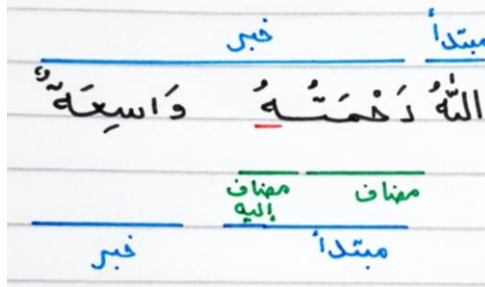 مبتدأ خبر
اللّٰهُ رَحْمَتُهُ وَاسِعَةٌ
مضاف مضاف إليه
مبتدأ خبر